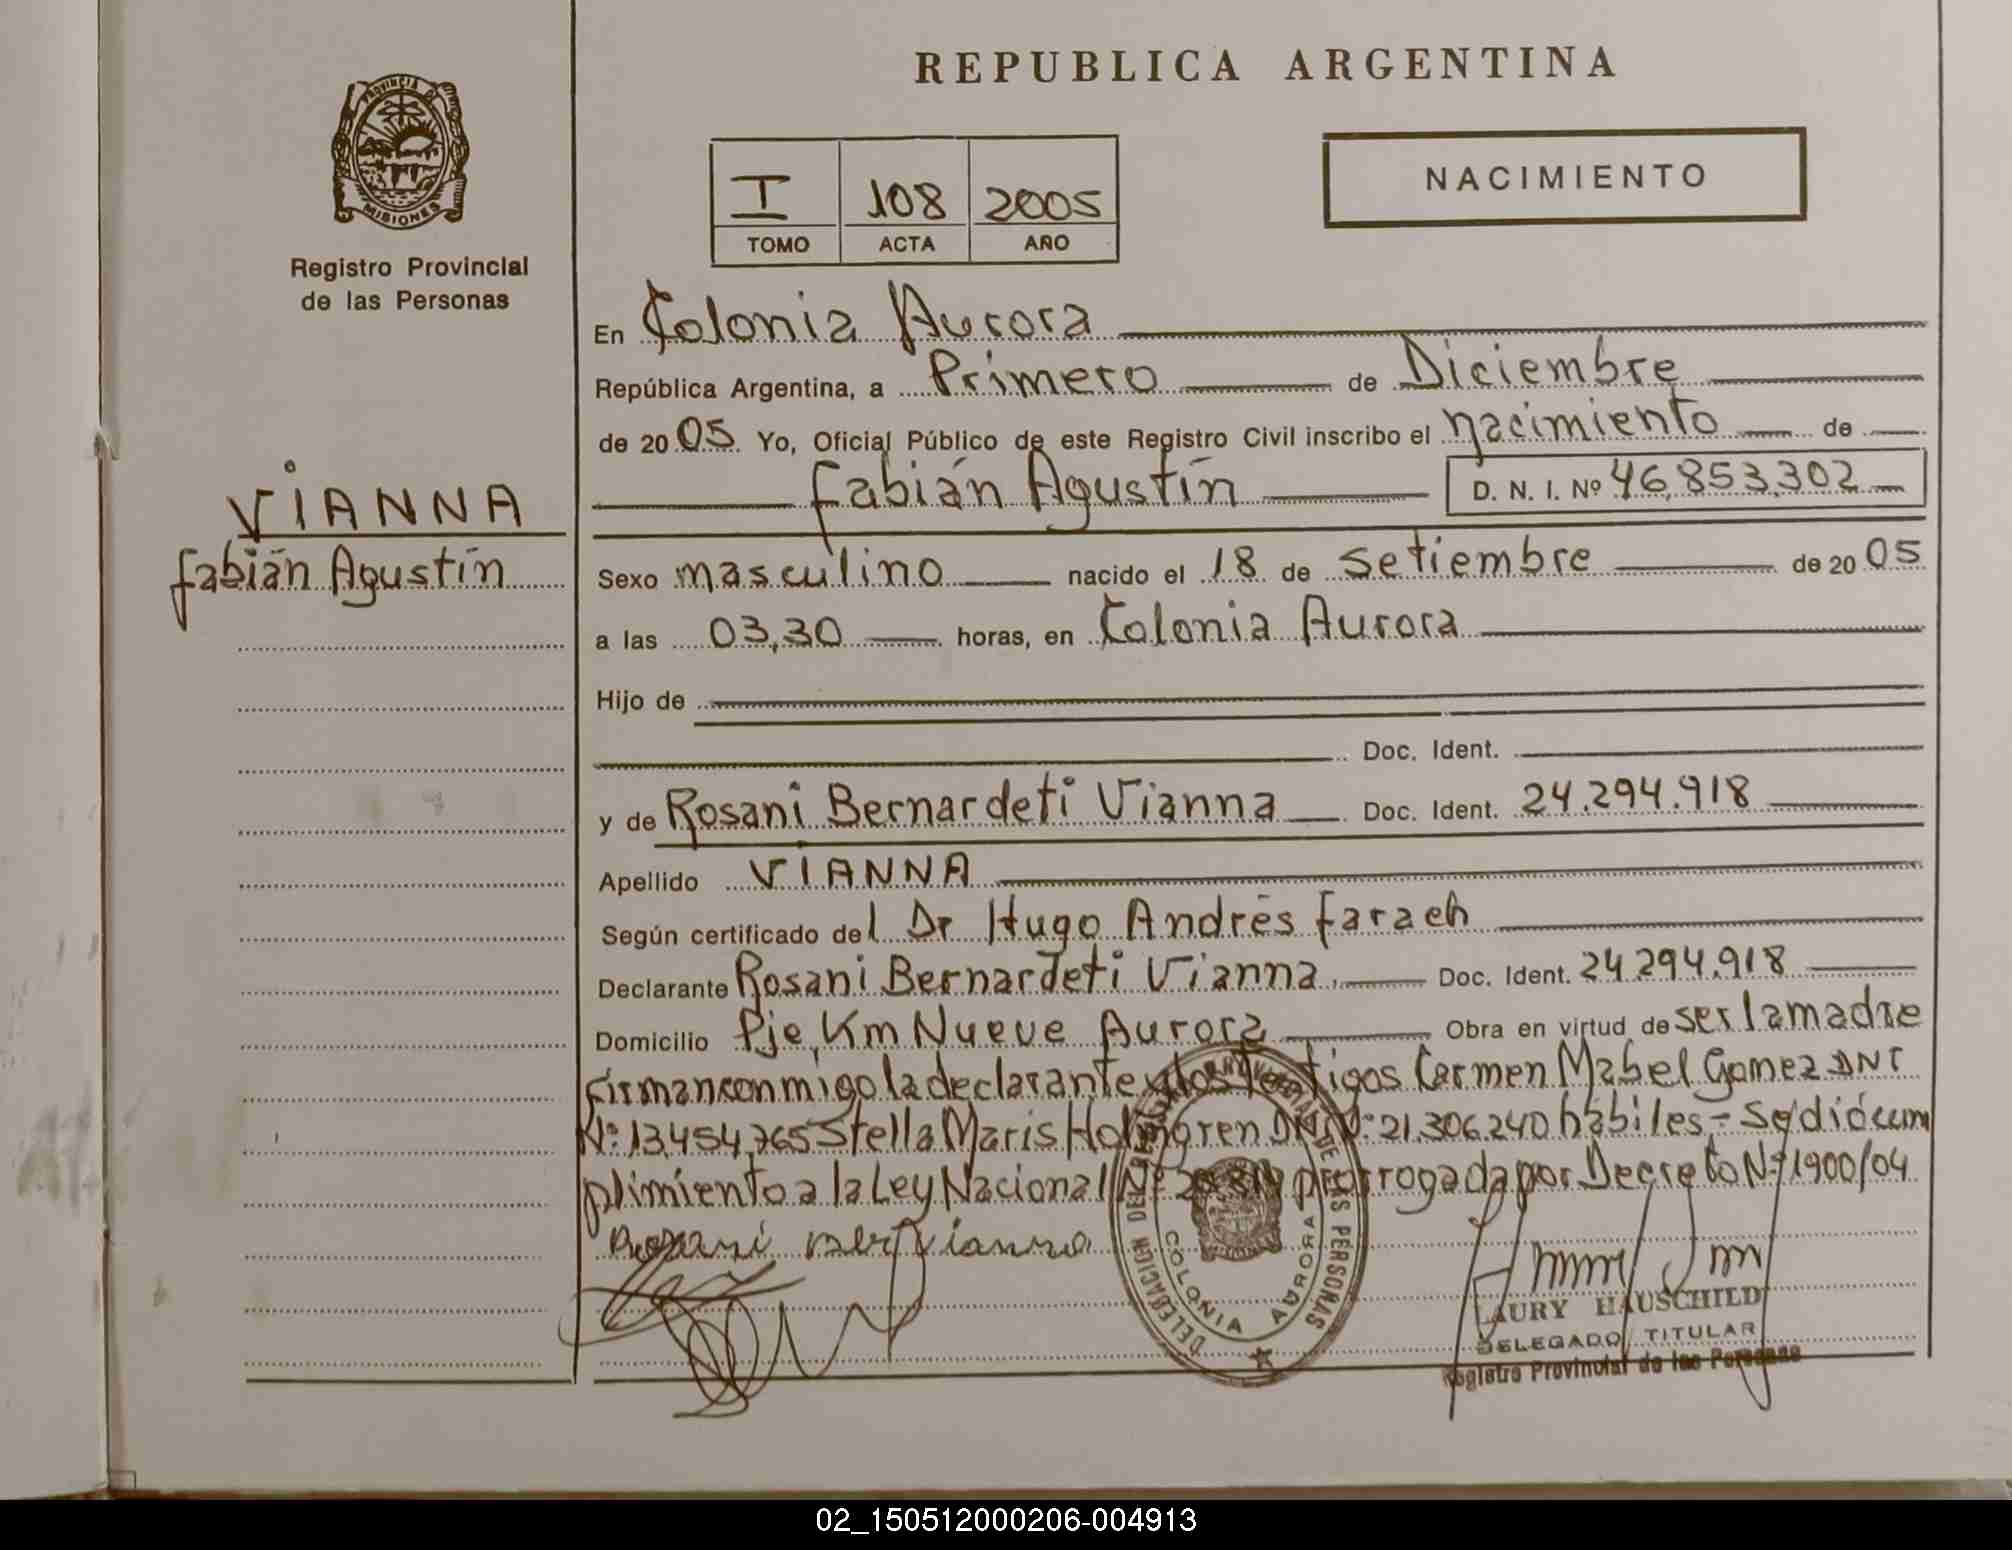 REPUBLICA ARGENTINA
PROVINCIA DE
MISIONES
Registro Provincial
de las Personas
NACIMIENTO
I 108 2005
TOMO ACTA AÑO
En Colonia Aurora
República Argentina, a Primero de Diciembre
de 20 05 Yo, Oficial Público de este Registro Civil inscribo el nacimiento de
Fabián Agustín D. N. I. Nº 46,853,302
VIANNA
Fabián Agustín
Sexo masculino nacido el 18 de Setiembre de 20 05
a las 03,30 horas, en Colonia Aurora
Hijo de
Doc. Ident.
y de Rosani Bernardeti Vianna Doc. Ident. 24.294.918
Apellido VIANNA
Según certificado del Dr Hugo Andrés Farach
Declarante Rosani Bernardeti Vianna, Doc. Ident. 24.294.918
Domicilio Pje, Km Nueve Aurora Obra en virtud de ser la madre
Firman conmigo la declarante y los testigos Carmen Mabel Gomez DNI
Nº: 13,454,765 Stella Maris Holmgren DNI Nº: 21.306.240 hábiles - Se dió cum
plimiento a la Ley Nacional Nº prorrogada por Decreto Nº 1900/04
Rosani Ber Vianna
DELEGACION DEL REGISTRO PROVINCIAL DE LAS PERSONAS
COLONIA AURORA
LAURY HAUSCHILD
DELEGADO TITULAR
Registro Provincial de las Personas
02_150512000206-004913